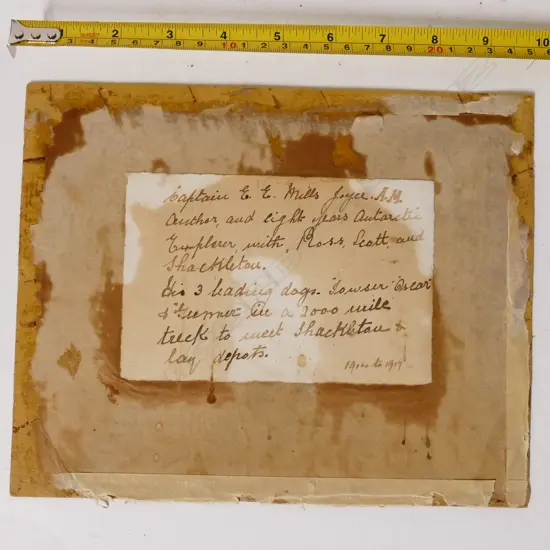 1 2 3 4 5 6 7 8 9 10
Captain E. E. Mills Joyce. A.M.
Author, and eight years Antarctic
Explorer with, Ross, Scott, and
Shackleton.
His 3 leading dogs. Towser "Oscar"
& "Gunner" in a 2000 mile
treck to meet Shackleton &
lay depots.
1914 to 1917